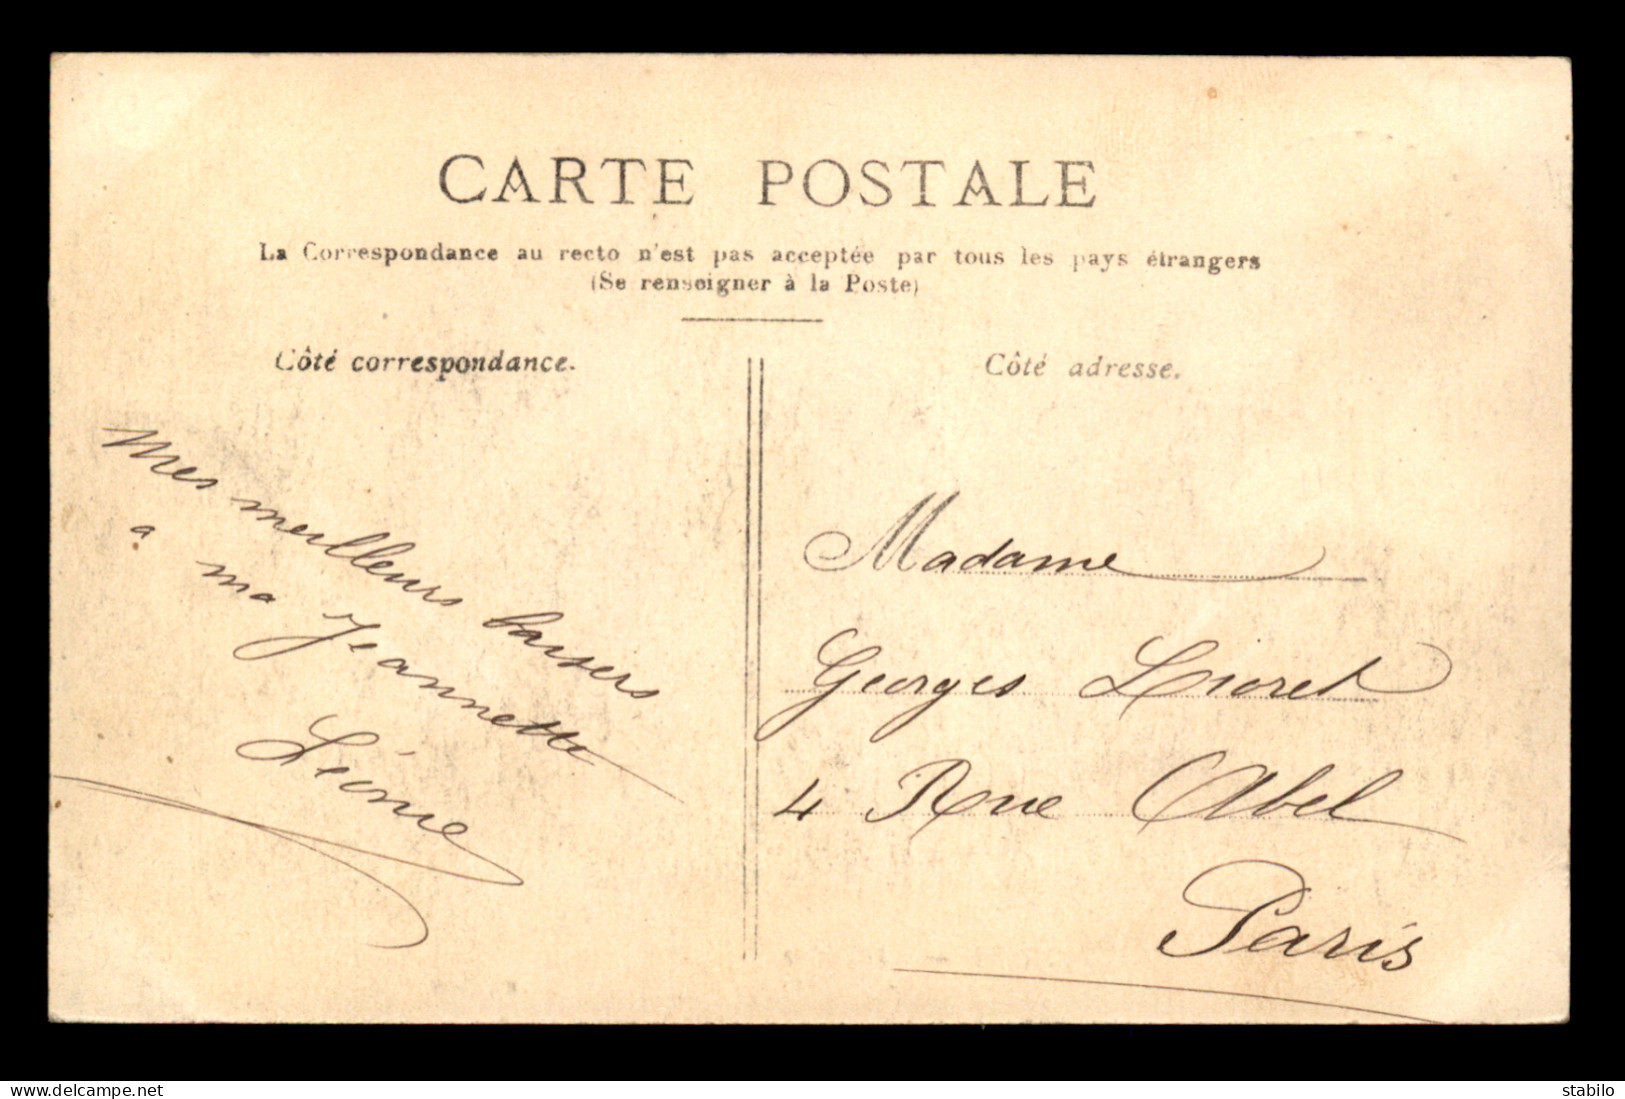 CARTE POSTALE
La Correspondance au recto n'est pas acceptée par tous les pays étrangers
(Se renseigner à la Poste)
Côté correspondance.
Côté adresse.
Mes meilleurs baisers
a ma Jeannette
Léonie
Madame
Georges Lioret
4 Rue Abel
Paris
delcampe.net
stabilo